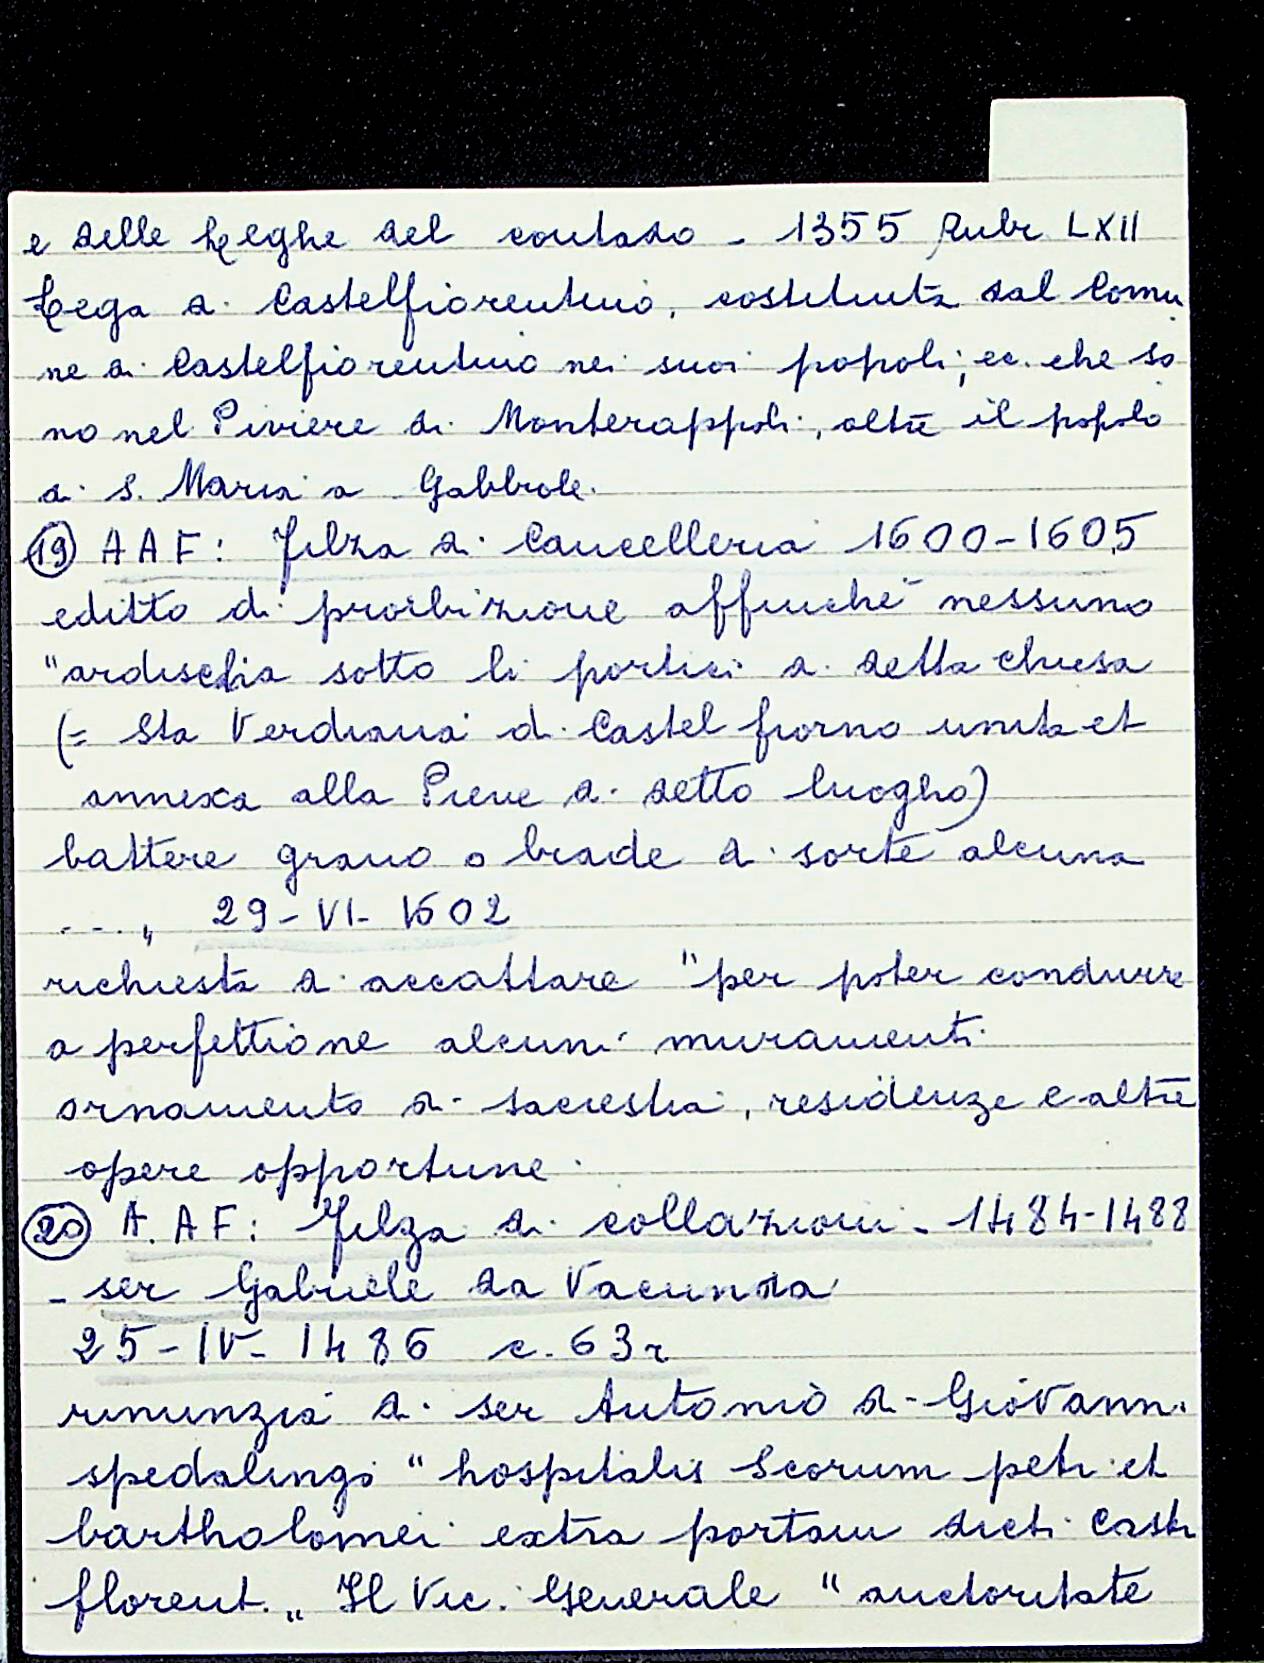 e delle Leghe del contado - 1355 Rubr LXII
Lega di Castelfiorentino, costituita dal Comu
ne di Castelfiorentino nei suoi popoli, ec. che so
no nel Piviere di Monterappoli, oltre il popolo
di S. Maria a Gabbiole.
(19) AAF: Filza di Cancelleria 1600-1605
editto di proibizione affinché nessuno
"ardischia sotto li portici di detta chiesa
(= Sta Verdiana di Castel fiorno unita et
annexa alla Pieve di detto luogho)
battere grano o biade di sorte alcuna
... " 29-VI-1602
richiesta di accattare "per poter condurre
a perfettione alcuni muramenti
ornamento di sacrestia, residenze e altre
opere opportune.
(20) A.AF: Filza di collazioni - 1484-1488
- ser Gabriele da Vacunda
25-IV-1486 c. 63r
rinunzia di ser Antonio di Giovanni
spedalingo "hospitalis Scorum petri et
bartholomei extra portam dicti Castri
florent." Il Vic. Generale "auctoritate